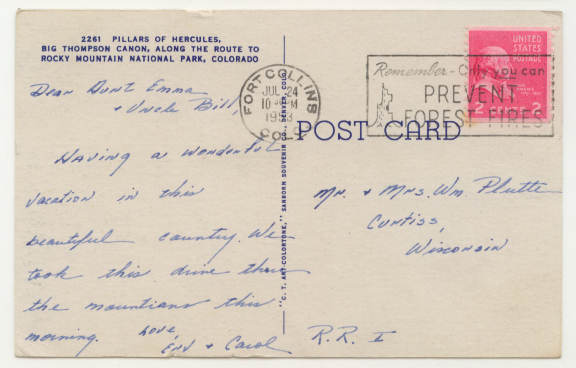 2261 PILLARS OF HERCULES,
BIG THOMPSON CANON, ALONG THE ROUTE TO
ROCKY MOUNTAIN NATIONAL PARK, COLORADO
Dear Aunt Emma
+ Uncle Bill,
Having a wonderful
vacation in this
beautiful country. We
took this drive thru
the mountians this
morning.
Love,
+ Carol
"C. T. ART-COLORTONE," SANBORN SOUVENIR CO., DENVER, COLO.
FORT COLLINS
JUL 24
10 M
1953
COLO
Remember - Only you can
PREVENT
FOREST FIRES
UNITED
STATES
POSTAGE
2 CENTS 2
POST CARD
Mr. + Mrs. Wm. Plutte
Curtiss,
Wisconsin
R.R. I